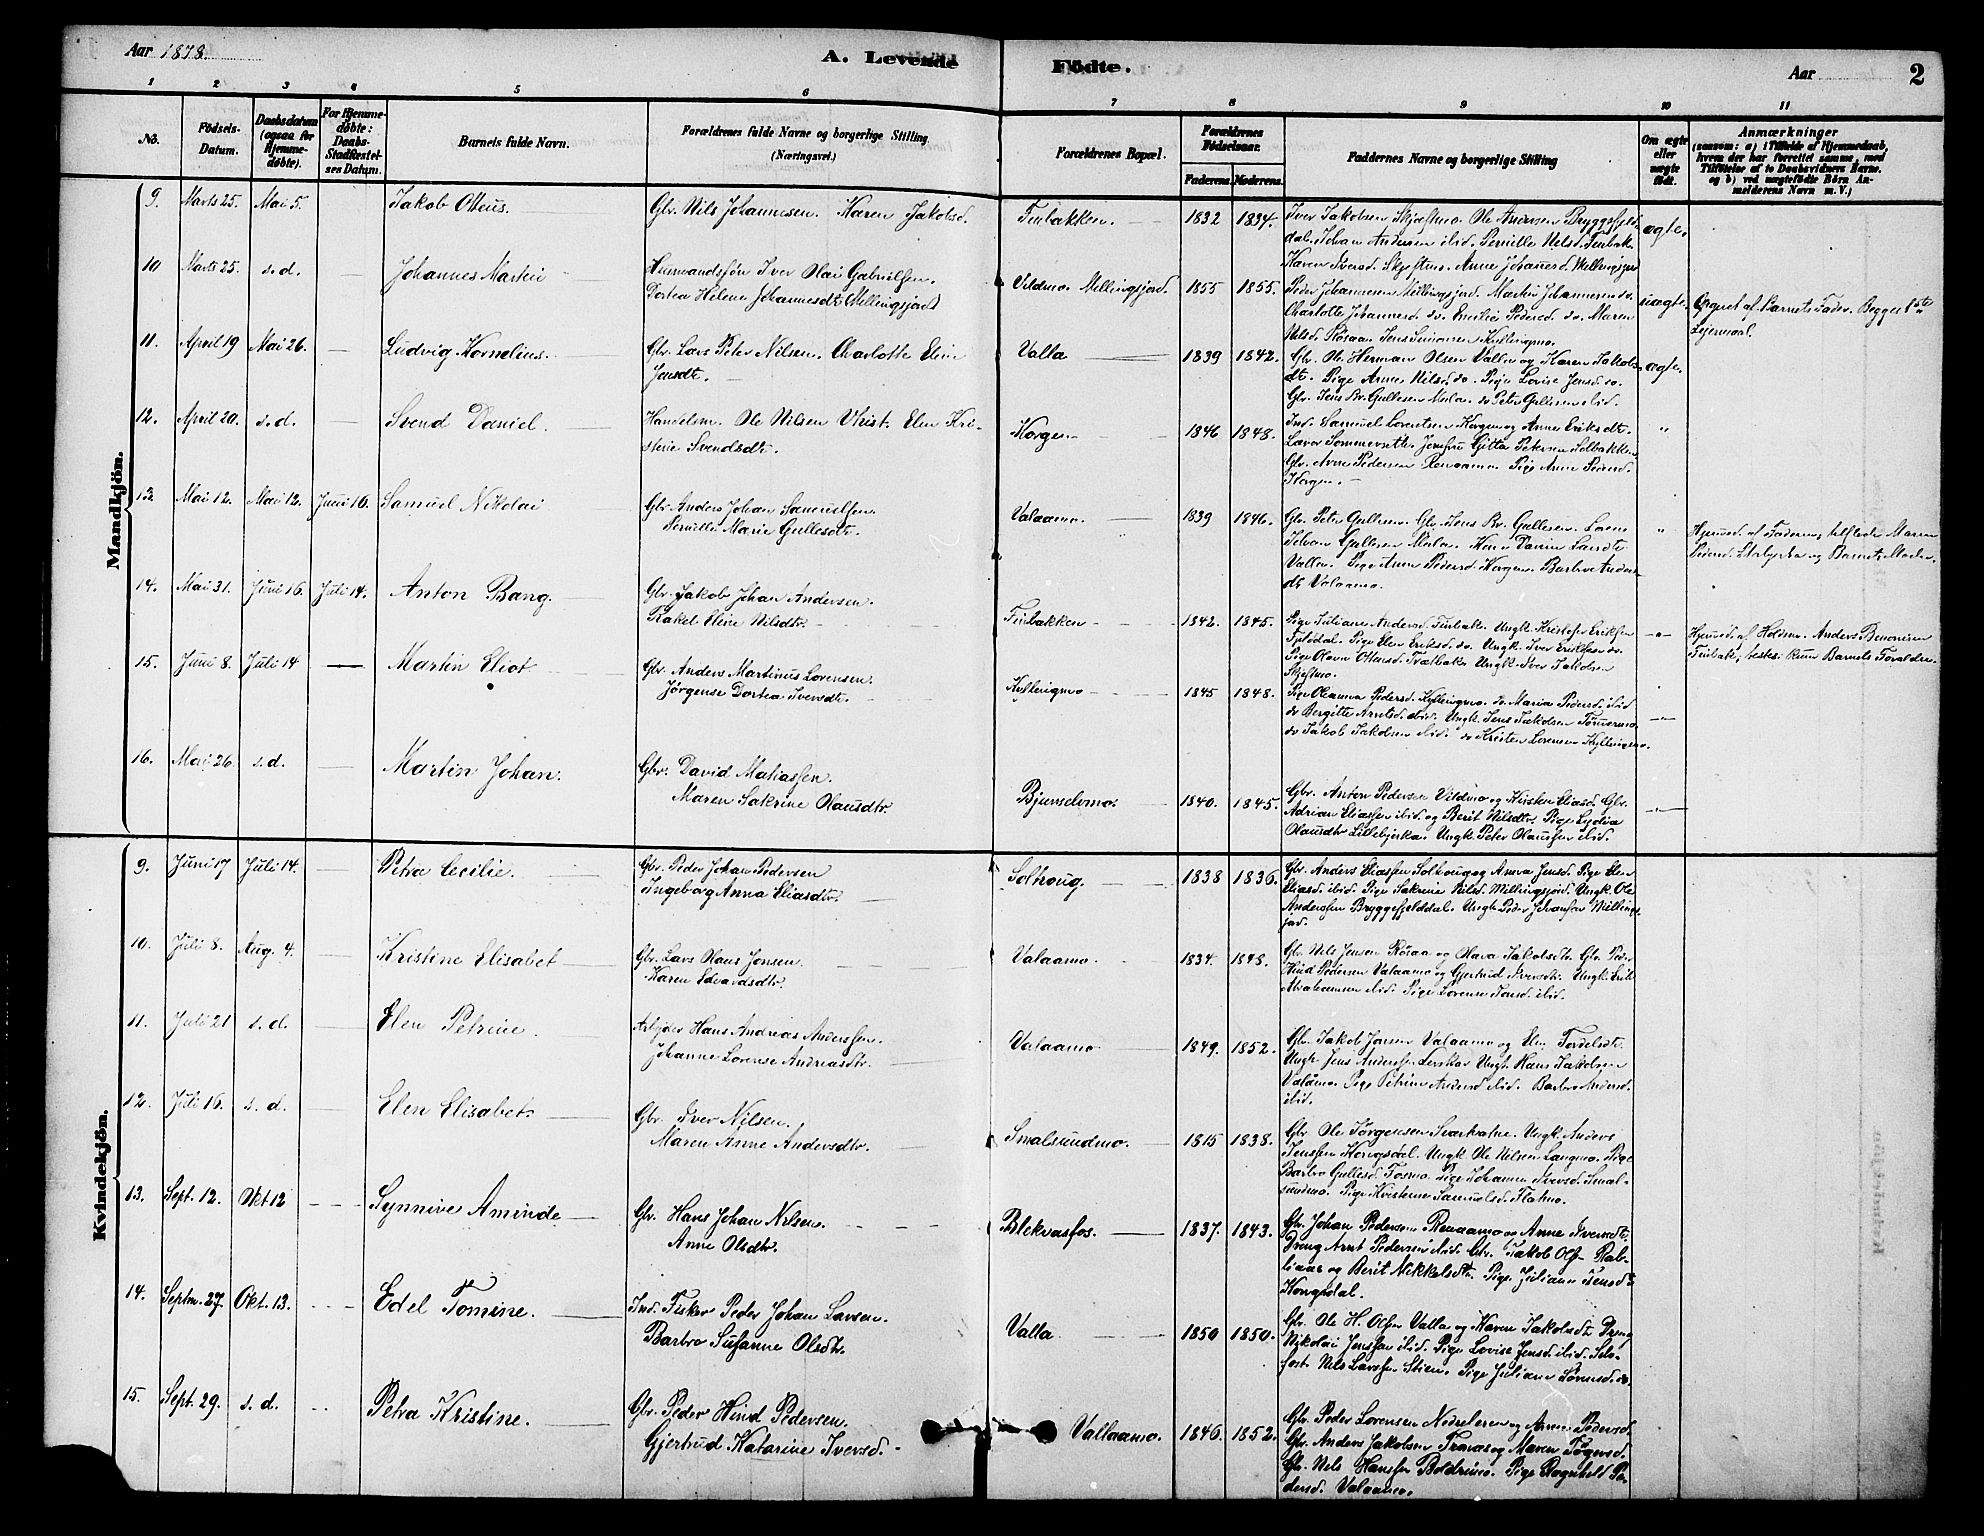 Aar 1878.
A. Levende Födte.
Aar
2
1 2 3 4 5 6 7 8 9 10 11
No.
Födsels-Datum.
Daabsdatum (ogsaa for Hjemmedøbte).
For Hjemmedøbte: Daabs-Stadfæstelses Datum.
Barnets fulde Navn.
Forældrenes fulde Navne og borgerlige Stilling (Næringsvei.)
Forældrenes Bopæl.
Forældrenes Födselsaar. Faderens. Moderens.
Faddernes Navne og borgerlige Stilling
Om ægte eller uægte født.
Anmærkninger
(saasom: a) i Tilfælde af Hjemmedaab, hvem der har forrettet samme, med Tilföielse af to Daabsvidners Navne, og b) ved uægtefödte Börn Anmelderens Navn m. V.)
Mandkjön.
9. Marts 25. Mai 5. Jakob Otteus. Gbr. Nils Johannesen. Karen Jakobsd. Finbakken. 1832 1834. ægte.
Iver Jakobsen Skjæftmo. Ole Andersen Bryggefjeld
dal. Johan Andersen ibid. Pernille Nilsd. Finbak.
Karen Iversd. Skjeftmo. Anne Johannesd. Mellingsjord
10 Marts 25. s.d. — Johannes Martin Husmandsøn Iver Olai Gabrielsen.
Dortea Helene Johannesdt. Mellingsjord
Vildmo. Mellingsjord. 1855 1855. uægte.
Peder Johannesen Mellingsjord. Martin Johannesen do.
Charlotte Johannesd. do. Emilie Pedersd. do. Maren
Nilsd. Røsaan. Jens Simonsen Kyllingmo.
Opgivet af Barnets Fader. Begges 1ste
Leiermaal.
11. April 19 Mai 26. — Ludvig Kornelius. Gbr. Lars Peter Nilsen. Charlotte Elen
Jensdt.
Valla 1839 1842. ægte.
Gbr. Ole Herman Olsen Valla og Karen Jakobs
dt. Pige Anne Nilsd. do. Pige Lovise Jensd. do.
Gbr. Jens Br. Gullesen Mola. do Peter Gullesen ibid.
12. April 20. s.d. — Svend Daniel. Handelsm. Ole Nilsen Qvist. Elen Kri-
stine Svendsdt.
Korgen 1846 1848. "
Ind. Samuel Lorentsen Korgen og Anne Eriksdt.
Lærer Sommersette. Jomfru Gjitta Petersen Solbakken
Gbr. Arne Pedersen Renaamo. Pige Anne Pedersd.
Korgen.
13 Mai 12. Mai 12. Juni 16. Samuel Nikolai Gbr. Anders Johan Samuelsen.
Pernille Marie Gullesdt.
Valaamo. 1839 1846. "
Gbr. Peter Gullesen. Gbr. Jens Br. Gullesen.
Johan Gullesen Mola.
Valla. Pige Anne Pedersd. Korgen. Barbro Anders
dt. Valaamo.
Hjemmed. af Faderen, tilstede Maren
Pedersd. og Barnets Moder.
14. Mai 31. Juni 16. Juli 14. Anton Bang. Gbr. Jakob Johan Andersen.
Rakel Eline Nilsdtr.
Finbakken 1842. 1845. —"—
Pige Juliane Andersd. Finbak. Ungk. Kristofer Eriksen
Pige Elen Eriksd. do. Ungk. Iver Eriksen do.
Pige Olava Ottesd. Ungk. Iver Jakobsen
Skjeftmo.
Hjemmed. af Holdsm. Anders Benonisen
Finbak, testes: kun Barnets Forældre.
15. Juni 8. Juli 14 — Martin Eliot Gbr. Anders Martinus Lorensen.
Jørgense Dortea Iversdt.
Kyllingmo 1845 1848. —"—
Pige Oleanna Pedersd. Kyllingmo. do Maria Pedersd. ibid
do Bergitte Arntsd. ibid. Ungk. Jens Jakobsen Tømmermo.
do Jakob Jakobsen ibid. do Kristen Lorensen Kyllingmo.
16. Mai 26. s.d. — Martin Johan. Gbr. David Matiassen.
Maren Sakrine Olausdtr.
Bjurselvmo. 1840. 1845. —"—
Gbr. Anton Pedersen Vildmo og Kirsten Eliasd. Gbr.
Adrian Eliassen ibid og Berit Nilsdtr. Pige Lydia
Olausdtr. Lillebjerka. Ungk. Peter Olaussen ibid.
Kvindekjön.
9. Juni 17 Juli 14. Petra Cecilie. Gbr. Peder Johan Pedersen
Ingeborg Anna Eliasdtr.
Solhoug. 1838 1836.
Gbr. Anders Eliassen Solhoug og Anna Jensd. Pige Elen
Eliasd. ibid. Pige Sakrine Nilsd. Millingsjord. Ungk. Ole
Anderssen Bryggefjelddal. Ungk. Peder Johansen Millings-
jord.
10. Juli 8. Aug. 4. Kristine Elisabet Gbr. Lars Olaus Jonsen.
Karen Edvardsdtr.
Valaamo. 1834. 1848.
Gbr. Nils Jensen Røsaa og Olava Jakobsdtr. Gbr. Ped.
Hind Pedersen Valaamo og Gjertrud Iversdtr. Ungk. Erik
Abrahamsen ibid. Pige Lorense Jonsd. ibid.
11. Juli 21 s.d. Elen Petrine. Arbejder Hans Andreas Anderssen.
Johanne Lorense Andreasdtr.
Valaamo 1849. 1852.
Gbr. Jakob Jonsen Valaamo og Elen Tordelsdtr.
Ungk. Jens Andersen Leerskar. Ungk. Hans Jakobsen
Valåmo. Pige Petrine Andersd. ibid. Barbro Andersd.
ibid.
12. Juli 16. s.d. Elen Elisabet. Gbr. Iver Nilsen.
Maren Anne Andersdtr.
Smalsundmo. 1815 1838.
Gbr. Ole Jørgensen Svartvatne. Ungk. Anders
Jenssen Kongsdal. Ungk. Ole Nilsen Langmo. Pige
Barbro Gullesd. Fosmo. Pige Johanna Iversd. Smal-
sundmo. Pige Kristense Samuelsd. Flatmo.
13. Sept. 12. Okt 12 Synnive Aminde Gbr. Hans Johan Nilsen.
Anne Olsdtr.
Blekvasfos. 1837. 1843.
Gbr. Johan Pedersen Renaamo og Anne Iversdtr.
Dreng Arnt Pedersen ibid. Gbr. Jakob Ols.
og Berit Mikkelsdtr. Pige Juliane Jensd.
Kongsdal.
14. Septm. 27. Okt. 13. Edel Tomine. Ind. Fisker Peder Johan Larsen.
Barbro Susanne Olsdtr.
Valla 1850 1850.
Gbr. Ole H. Olsen Valla og Karen Jakobsdt. Dreng
Nikolai Jenssen ibid. Pige Lovise Jensd. ibid. Selv-
fost. Nils Larssen Stien. Pige Juliane Sørensd. do.
15. Sept. 29. s.d. Petra Kristine. Gbr. Peder Hind Pedersen.
Gjertrud Katarine Iversd.
Vallaamo. 1846. 1852.
Gbr. Peder Lorensen Nedreleren og Anne Pedersd.
Gbr. Anders Jakobsen og Maren
Gbr. Nils Hanssen Boldremo. Pige Ragnhild Pe-
dersd. Valaamo.